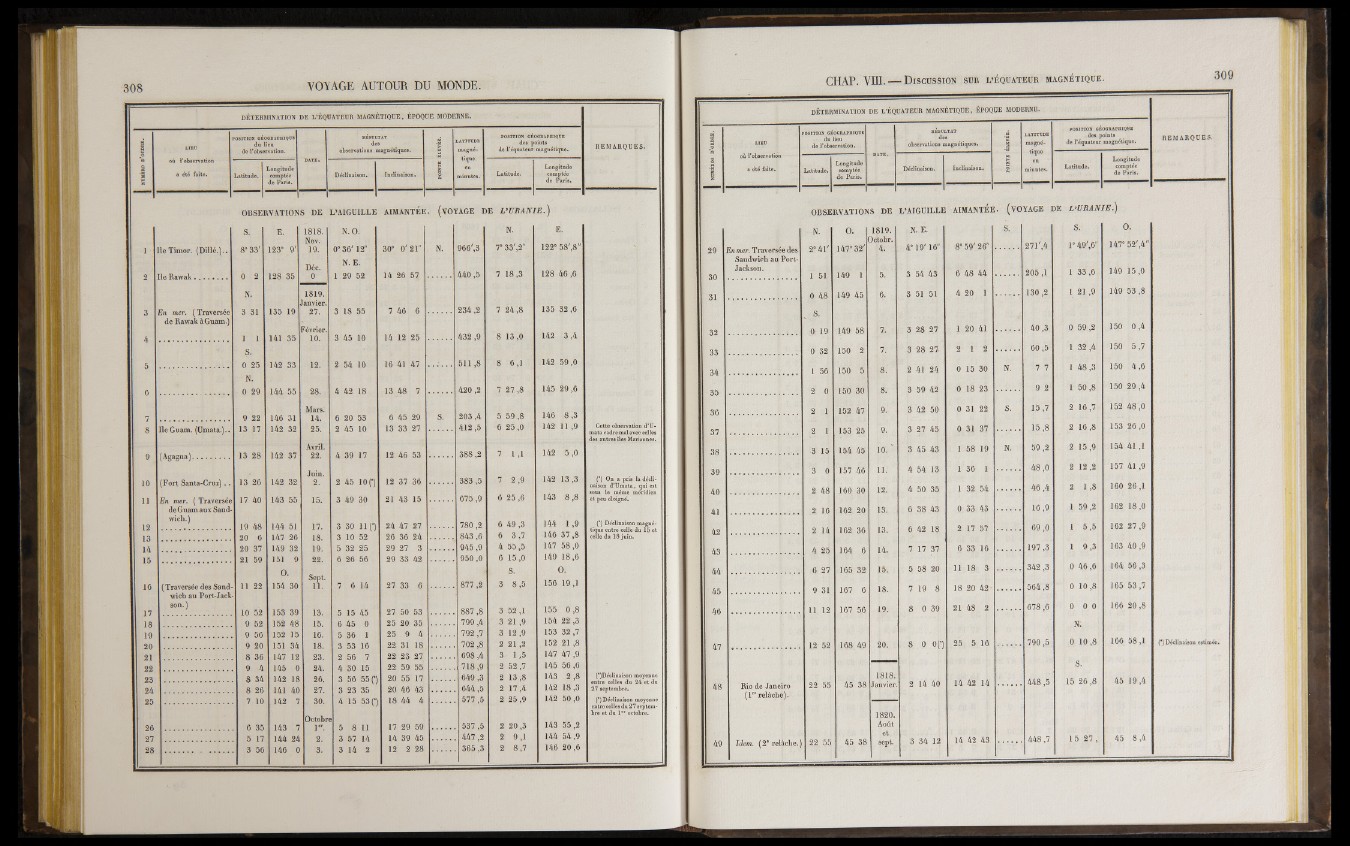 308 VOYAGE AUTOUR DU MONDE.
DÉTERMINATION DE L'ÉQUATEUR MAGNÉTIQUE, ÉPOQUE MODERNE.
NUMÉRO D'ORDRE. | LIEU où l'observation a été faite. | POSITION GÉOGRAPHIQUE du lieu de l'observation. Latitude. | Longitude comptée de Paris. | DATE. | RÉSULTAT des observations magnétiques. Déclinaison. | Inclinaison. | LATITUDE magnétique en minutes. | POSITION GÉOGRAPHIQUE des points de l'équateur magnétique. Latitude. | Longitude comptée de Paris. | REMARQUES.
OBSERVATIONS DE L'AIGUILLE AIMANTÉE. (VOYAGE DE L'URANIE.)
S. E. 1818. N. O. N. E.
Nov.
1 Ile Timor. (Dillé.).. 8° 33' 123° 9' 19. 0° 36' 12" 30° 0' 21" N. 960',3 7° 33',2" 122° 58',8"
Déc. N. E.
2 Ile Rawak........ 0 2 128 35 0 1 29 52 14 26 57 ...... 440,5 7 18,3 128 46,6
N. 1819.
Janvier.
3 En mer. (Traversée 3 31 135 19 27. 3 18 55 7 46 6 ...... 234,2 7 24,8 135 32,6
de Rawak à Guam.)
Février.
4 ................ 1 1 141 35 10. 3 45 10 14 12 25 ...... 432,9 8 13,0 142 3,4
S.
5 ................ 0 25 142 33 12. 2 54 16 16 41 47 ...... 511,8 8 6,1 142 59,0
N.
6 ................ 0 29 144 55 28. 4 42 18 13 48 7 ...... 420,2 7 27,8 145 29,6
Mars.
7 ................ 9 22 146 31 14. 6 20 53 6 45 29 S. 203,4 5 59,8 146 8,3
8 Ile Guam. (Umata.).. 13 17 142 32 25. 2 45 10 13 33 27 ...... 412,5 6 25,0 142 11,9 Cette observation d'Umata cadre mal avec celles des autres îles Mariannes.
Avril.
9 (Agagna)......... 13 28 142 37 22. 4 39 17 12 46 53 ...... 388,2 7 1,1 142 5,0
Juin.
10 (Fort Santa-Cruz).. 13 26 142 32 2. 2 45 10(*) 12 37 36 ...... 383,5 7 2,9 142 13,3 (*) On a pris la déclinaison d'Umata, qui est sous le même méridien et peu éloigné.
11 En mer. (Traversée 17 40 143 55 15. 3 49 30 21 43 15 ...... 675,9 6 25,6 143 8,8
de Guam aux Sandwich.)
12 ................ 19 48 144 51 17. 3 30 11(*) 24 47 27 ...... 780,2 6 49,3 144 1,9 (*) Déclinaison magnétique entre celle du 15 et celle du 18 juin.
13 ................ 20 6 147 26 18. 3 10 52 26 36 24 ...... 843,6 6 3,7 146 37,8
14 ................ 20 37 149 32 19. 5 32 25 29 27 3 ...... 945,9 4 55,5 147 58,0
15 ................ 21 59 151 9 22. 6 26 56 29 33 42 ...... 950,0 6 15,0 149 18,6
O. Sept. S. O.
16 (Traversée des Sandwich au Port-Jackson.) 11 22 154 30 11. 7 6 14 27 33 6 ...... 877,2 3 8,5 156 19,1
17 ................ 10 52 153 39 13. 5 15 45 27 50 53 ...... 887,8 3 52,1 155 0,8
18 ................ 9 52 152 48 15. 6 45 0 25 20 35 ...... 799,4 3 21,9 154 22,3
19 ................ 9 56 152 15 16. 5 36 1 25 9 4 ...... 792,7 3 12,9 153 32,7
20 ................ 9 20 151 34 18. 3 53 16 22 31 18 ...... 702,8 2 21,2 152 21,8
21 ................ 8 36 147 12 23. 2 56 7 22 23 27 ...... 698,4 3 1,5 147 47,9
22 ................ 9 4 145 0 24. 4 30 15 22 59 55 ...... 718,9 2 52,7 145 56,6
23 ................ 8 34 142 18 26. 3 56 55(*) 20 55 17 ...... 649,3 2 13,8 143 2,8 (*) Déclinaison moyenne entre celles du 24 et du 27 septembre.
24 ................ 8 26 141 40 27. 3 23 35 20 46 43 ...... 644,5 2 17,4 142 18,3
25 ................ 7 10 142 7 30. 4 15 53(*) 18 44 4 ...... 577,5 2 25,9 142 50,0 (*) Déclinaison moyenne entre celles du 27 septembre et du 1er octobre.
Octobre
26 ................ 6 35 143 7 1er. 5 8 11 17 29 59 ...... 537,5 2 20,3 143 55,2
27 ................ 5 17 144 24 2. 3 57 14 14 39 45 ...... 447,2 2 9,1 144 54,9
28 ................ 3 56 146 0 3. 3 14 2 12 2 28 ...... 365,3 2 8,7 146 20,6
CHAP. VIII. — DISCUSSION SUR L'ÉQUATEUR MAGNÉTIQUE. 309
DÉTERMINATION DE L'ÉQUATEUR MAGNÉTIQUE, ÉPOQUE MODERNE.
NUMÉRO D'ORDRE. | LIEU où l'observation a été faite. | POSITION GÉOGRAPHIQUE du lieu de l'observation. Latitude. | Longitude comptée de Paris. | DATE. | RÉSULTAT des observations magnétiques. Déclinaison. | Inclinaison. | LATITUDE magnétique en minutes. | POSITION GÉOGRAPHIQUE des points de l'équateur magnétique. Latitude. | Longitude comptée de Paris. | REMARQUES.
OBSERVATIONS DE L'AIGUILLE AIMANTÉE. (VOYAGE DE L'URANIE.)
N. O. 1819. N. E. S. S. O.
Octobr.
29 En mer. Traversée des Sandwich au Port-Jackson. 2° 41' 147° 32' 4. 4° 19' 16" 8° 59' 26" ...... 271',4 1° 49',6" 147° 52',4"
30 ................ 1 51 149 1 5. 3 54 43 6 48 44 ...... 205,1 1 33,6 149 15,0
31 ................ 0 48 149 45 6. 3 51 51 4 20 1 ...... 130,2 1 21,9 149 53,8
S.
32 ................ 0 19 149 58 7. 3 28 27 1 20 41 ...... 40,3 0 59,2 150 0,4
33 ................ 0 32 150 2 7. 3 28 27 2 1 2 ...... 60,5 1 32,4 150 5,7
34 ................ 1 56 150 5 8. 2 41 24 0 15 30 N. 7 7 1 48,3 150 4,6
35 ................ 2 0 150 30 8. 3 59 42 0 18 23 ...... 9 2 1 50,8 150 29,4
36 ................ 2 1 152 47 9. 3 42 50 0 31 22 S. 15,7 2 16,7 152 48,0
37 ................ 2 1 153 25 9. 3 27 45 0 31 37 ...... 15,8 2 16,8 153 26,0
38 ................ 3 15 154 45 10. 3 45 43 1 58 19 N. 59,2 2 15,9 154 41,1
39 ................ 3 0 157 46 11. 4 54 13 1 36 1 ...... 48,0 2 12,2 157 41,9
40 ................ 2 48 160 30 12. 4 50 35 1 32 54 ...... 46,4 2 1,8 160 26,1
41 ................ 2 16 162 20 13. 6 38 43 0 33 43 ...... 16,9 1 59,2 162 18,0
42 ................ 2 14 162 36 13. 6 42 18 2 17 57 ...... 69,0 1 5,5 162 27,9
43 ................ 4 25 164 6 14. 7 17 37 6 33 16 ...... 197,3 1 9,3 163 40,9
44 ................ 6 27 165 32 15. 5 58 20 11 18 3 ...... 342,3 0 46,6 164 56,3
45 ................ 9 31 167 6 18. 7 19 8 18 20 42 ...... 564,8 0 10,8 165 53,7
46 ................ 11 12 167 56 19. 8 0 39 21 48 2 ...... 678,6 0 0 0 166 20,8
N.
47 ................ 12 52 168 49 20. 8 0 0(*) 25 5 16 ...... 790,5 0 10,8 166 58,1 (*) Déclinaison estimée.
1818. S.
48 Rio de Janeiro (1re relâche). 22 55 45 38 Janvier. 2 14 40 14 42 14 ...... 448,5 15 26,8 45 19,4
1820.
Août et
49 Idem. (2e relâche.) 22 55 45 38 sept. 3 34 12 14 42 43 ...... 448,7 15 27, 45 8,4